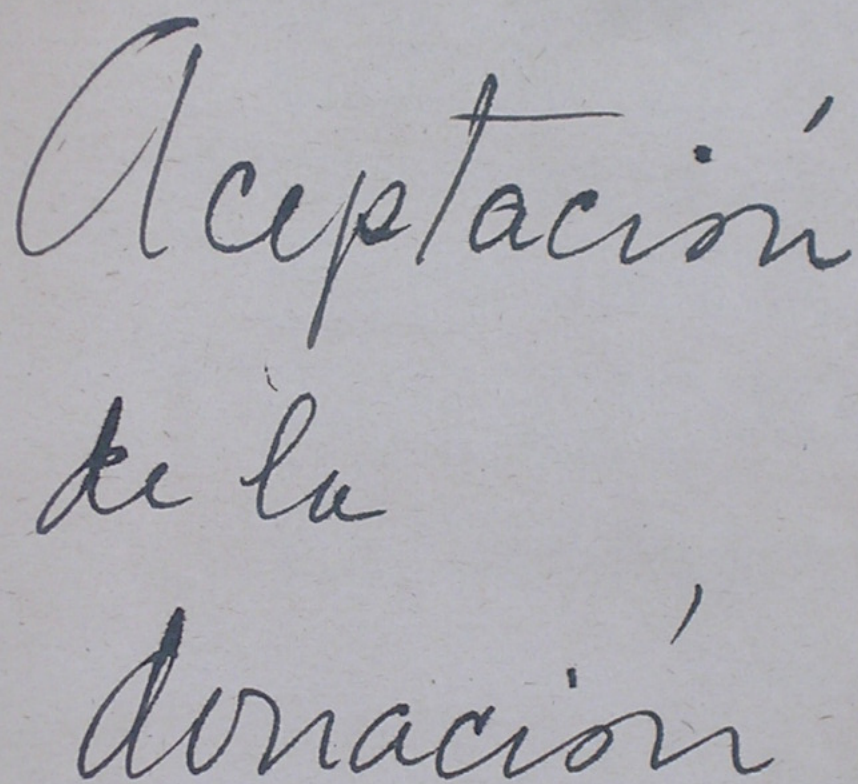 Aceptación
de la
donación